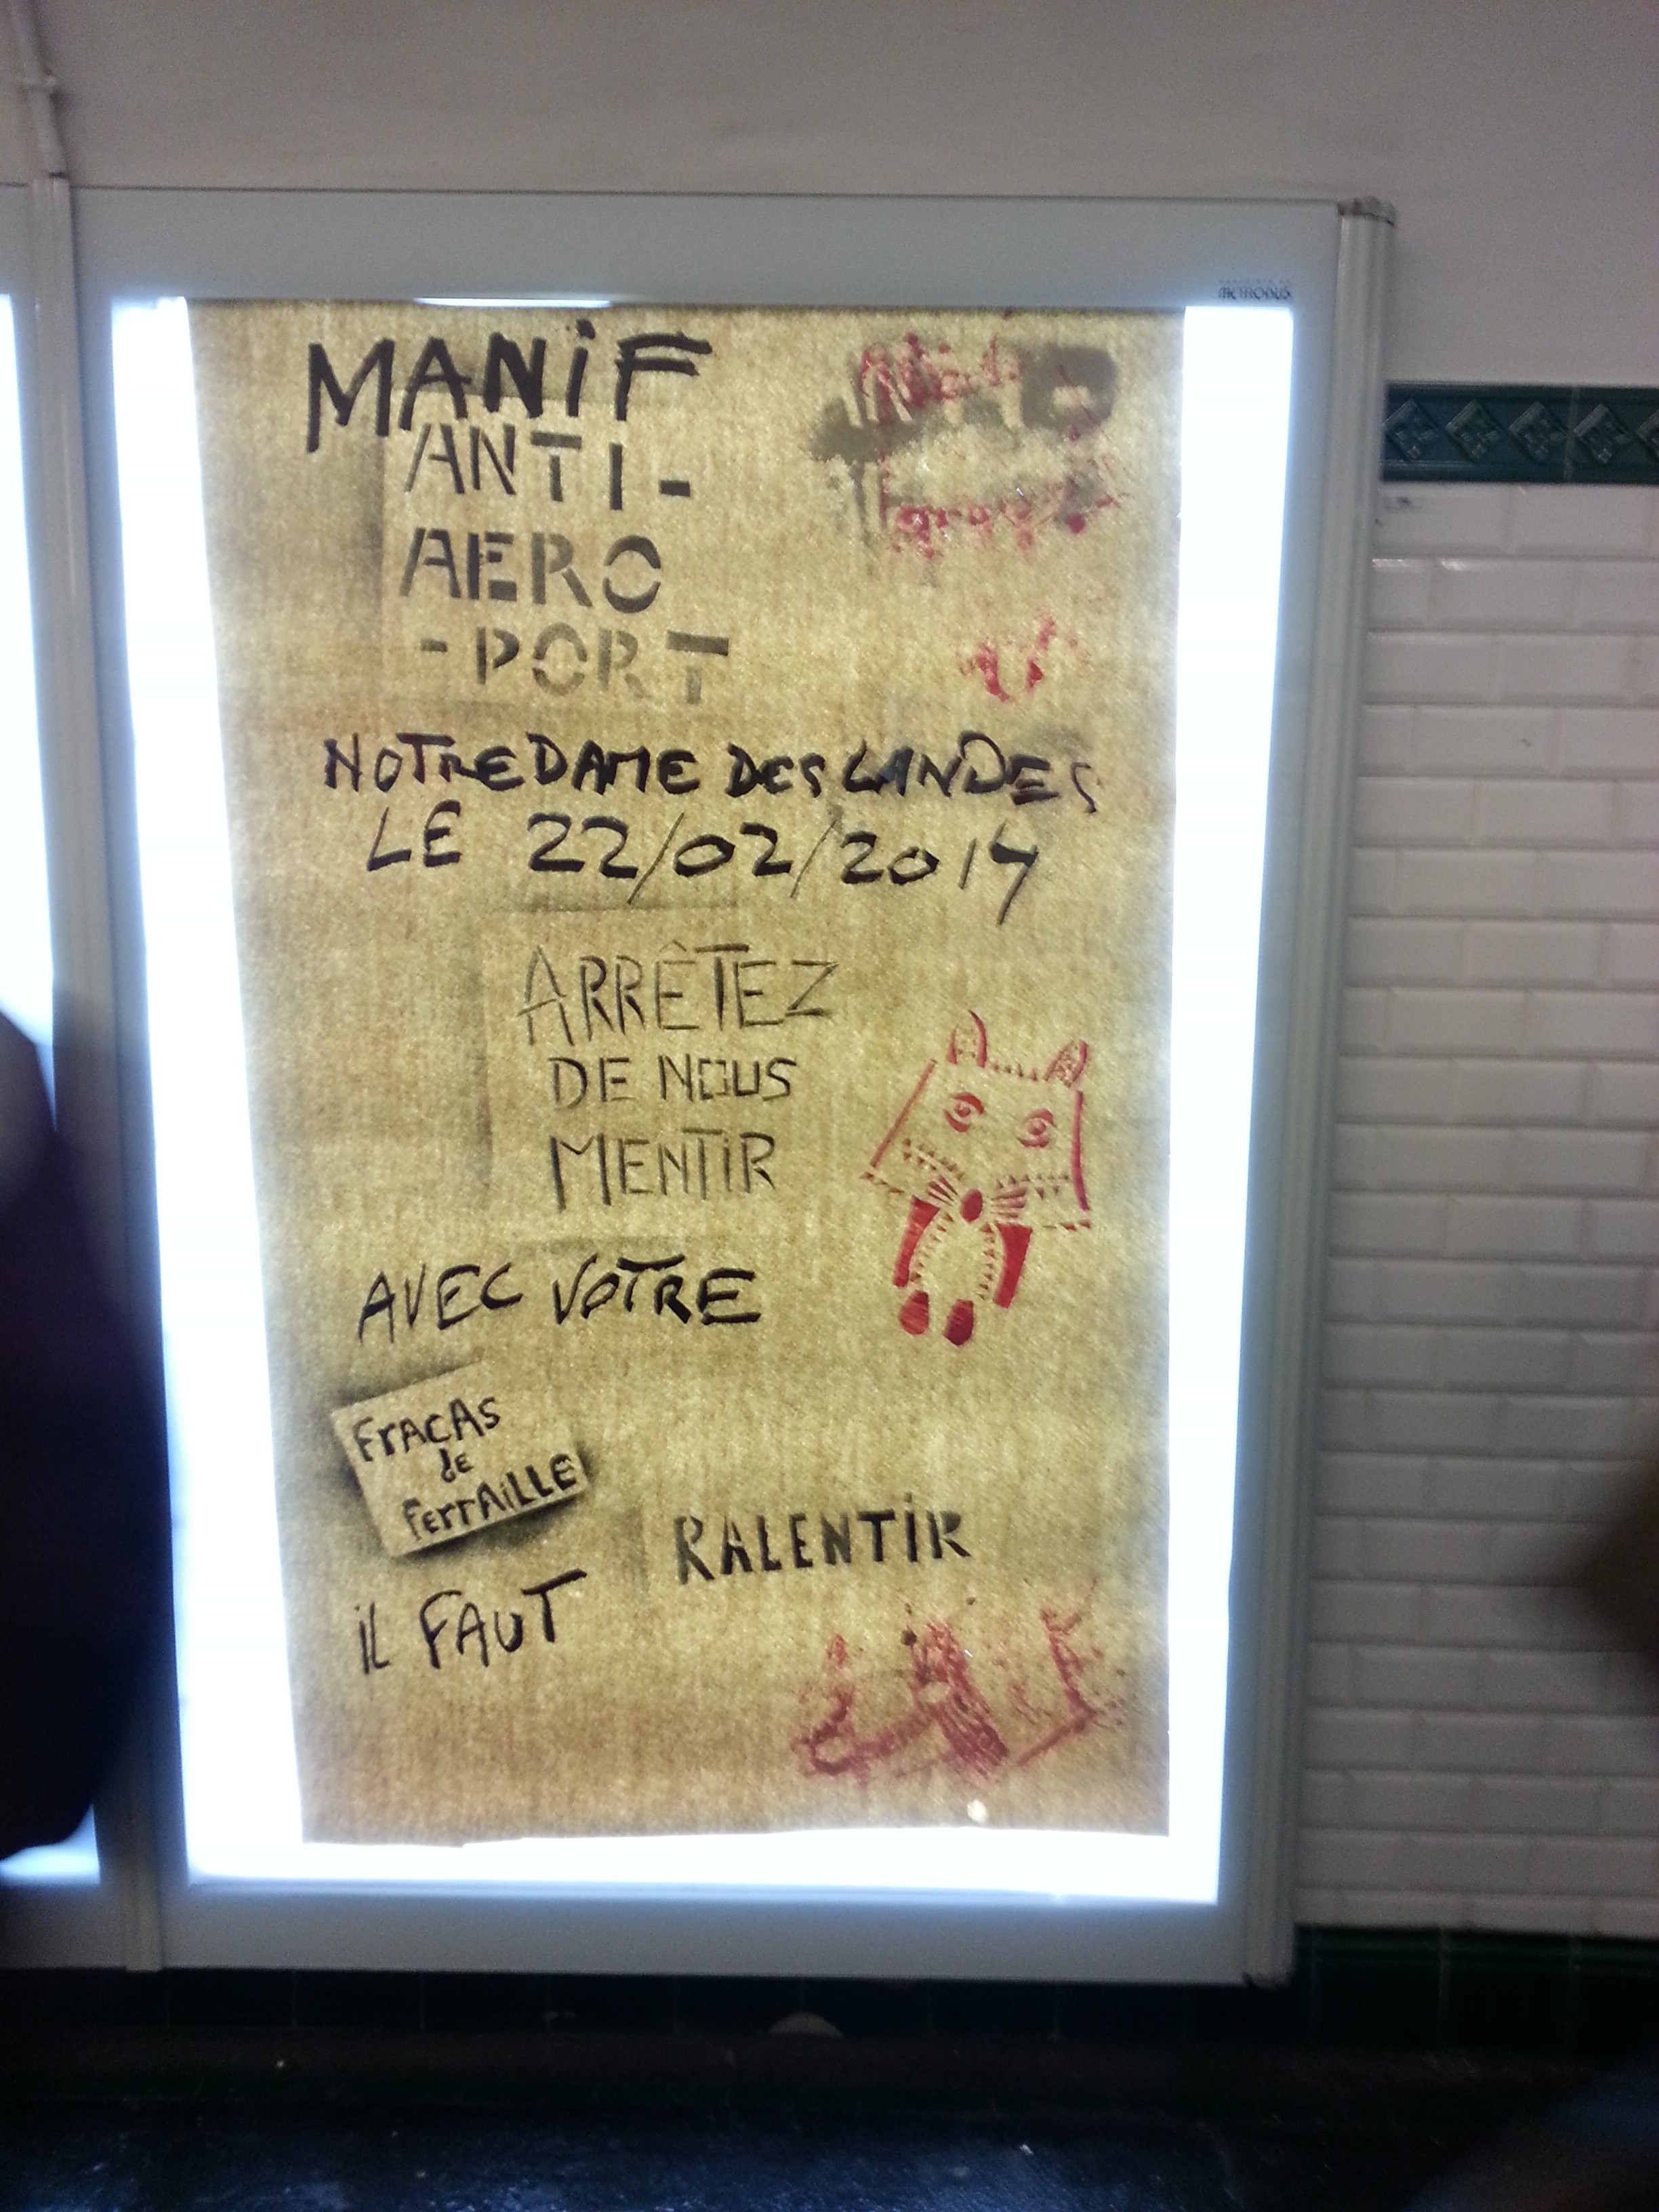 MANiF
ANTI-
AERO
-PORT
NOTRE DAME DES LANDES
LE 22/02/2014
ARRÊTEZ
DE NOUS
MENTiR
AVEC VOTRE
FrACAs
de
ferrAiLLE
RALENTiR
iL FAUT